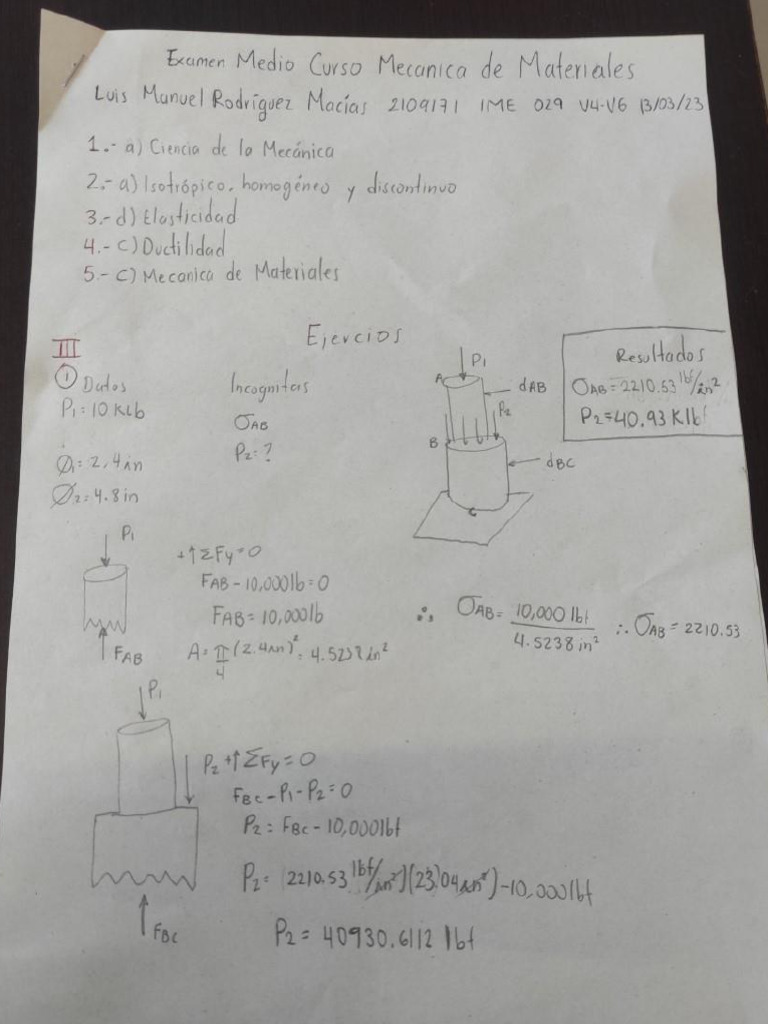 Examen Medio Curso Mecanica de Materiales
Luis Manuel Rodríguez Macías 2109171 IME 029 V4-V6 13/03/23
1.- a) Ciencia de la Mecánica
2.- a) Isotrópico, homogéneo y discontinuo
3.- d) Elasticidad
4.- c) Ductilidad
5.- c) Mecanica de Materiales
Ejercios
III
① Datos
P1 = 10 Klb
Ø1 = 2.4 in
Ø2 = 4.8 in
Incognitas
σAB
P2 = ?
P1
A
dAB
P2
B
dBC
C
Resultados
σAB = 2210.53 lbf/in²
P2 = 40.93 Klbf
P1
FAB
+↑ΣFy = 0
FAB - 10,000 lb = 0
FAB = 10,000 lb
A = π/4 (2.4 in)² = 4.5238 in²
∴ σAB = 10,000 lbf / 4.5238 in² ∴ σAB = 2210.53
P1
P2
FBC
+↑ΣFy = 0
FBC - P1 - P2 = 0
P2 = FBC - 10,000 lbf
P2 = (2210.53 lbf/in²)(23.04 in²) - 10,000 lbf
P2 = 40930.6112 lbf